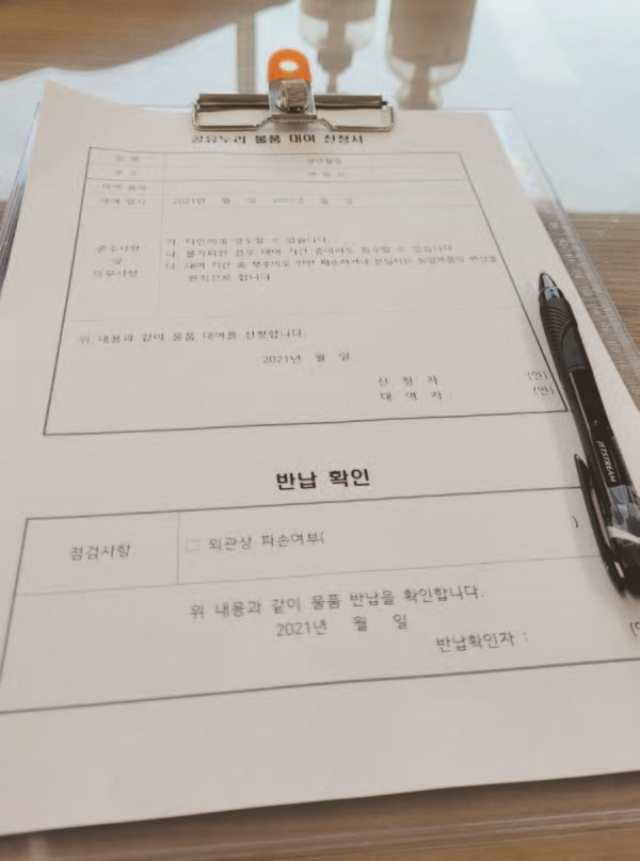 공유누리 물품 대여 신청서
성 명 생년월일
주 소 연 락 처
대여 품목
대여 일시 2021년 월 일 ~ 2021년 월 일
준수사항
및
의무사항
가. 타인에게 양도할 수 없습니다.
나. 불가피한 경우 대여 기간 중이라도 회수할 수 있습니다.
다. 대여 기간 중 부주의로 인한 파손하거나 분실시는 동일제품의 변상을
원칙으로 합니다.
위 내용과 같이 물품 대여를 신청합니다.
2021년 월 일
신 청 자 : (인)
대 여 자 : (인)
반납 확인
점검사항 □ 외관상 파손여부( )
위 내용과 같이 물품 반납을 확인합니다.
2021년 월 일
반납확인자 :
JETSTREAM